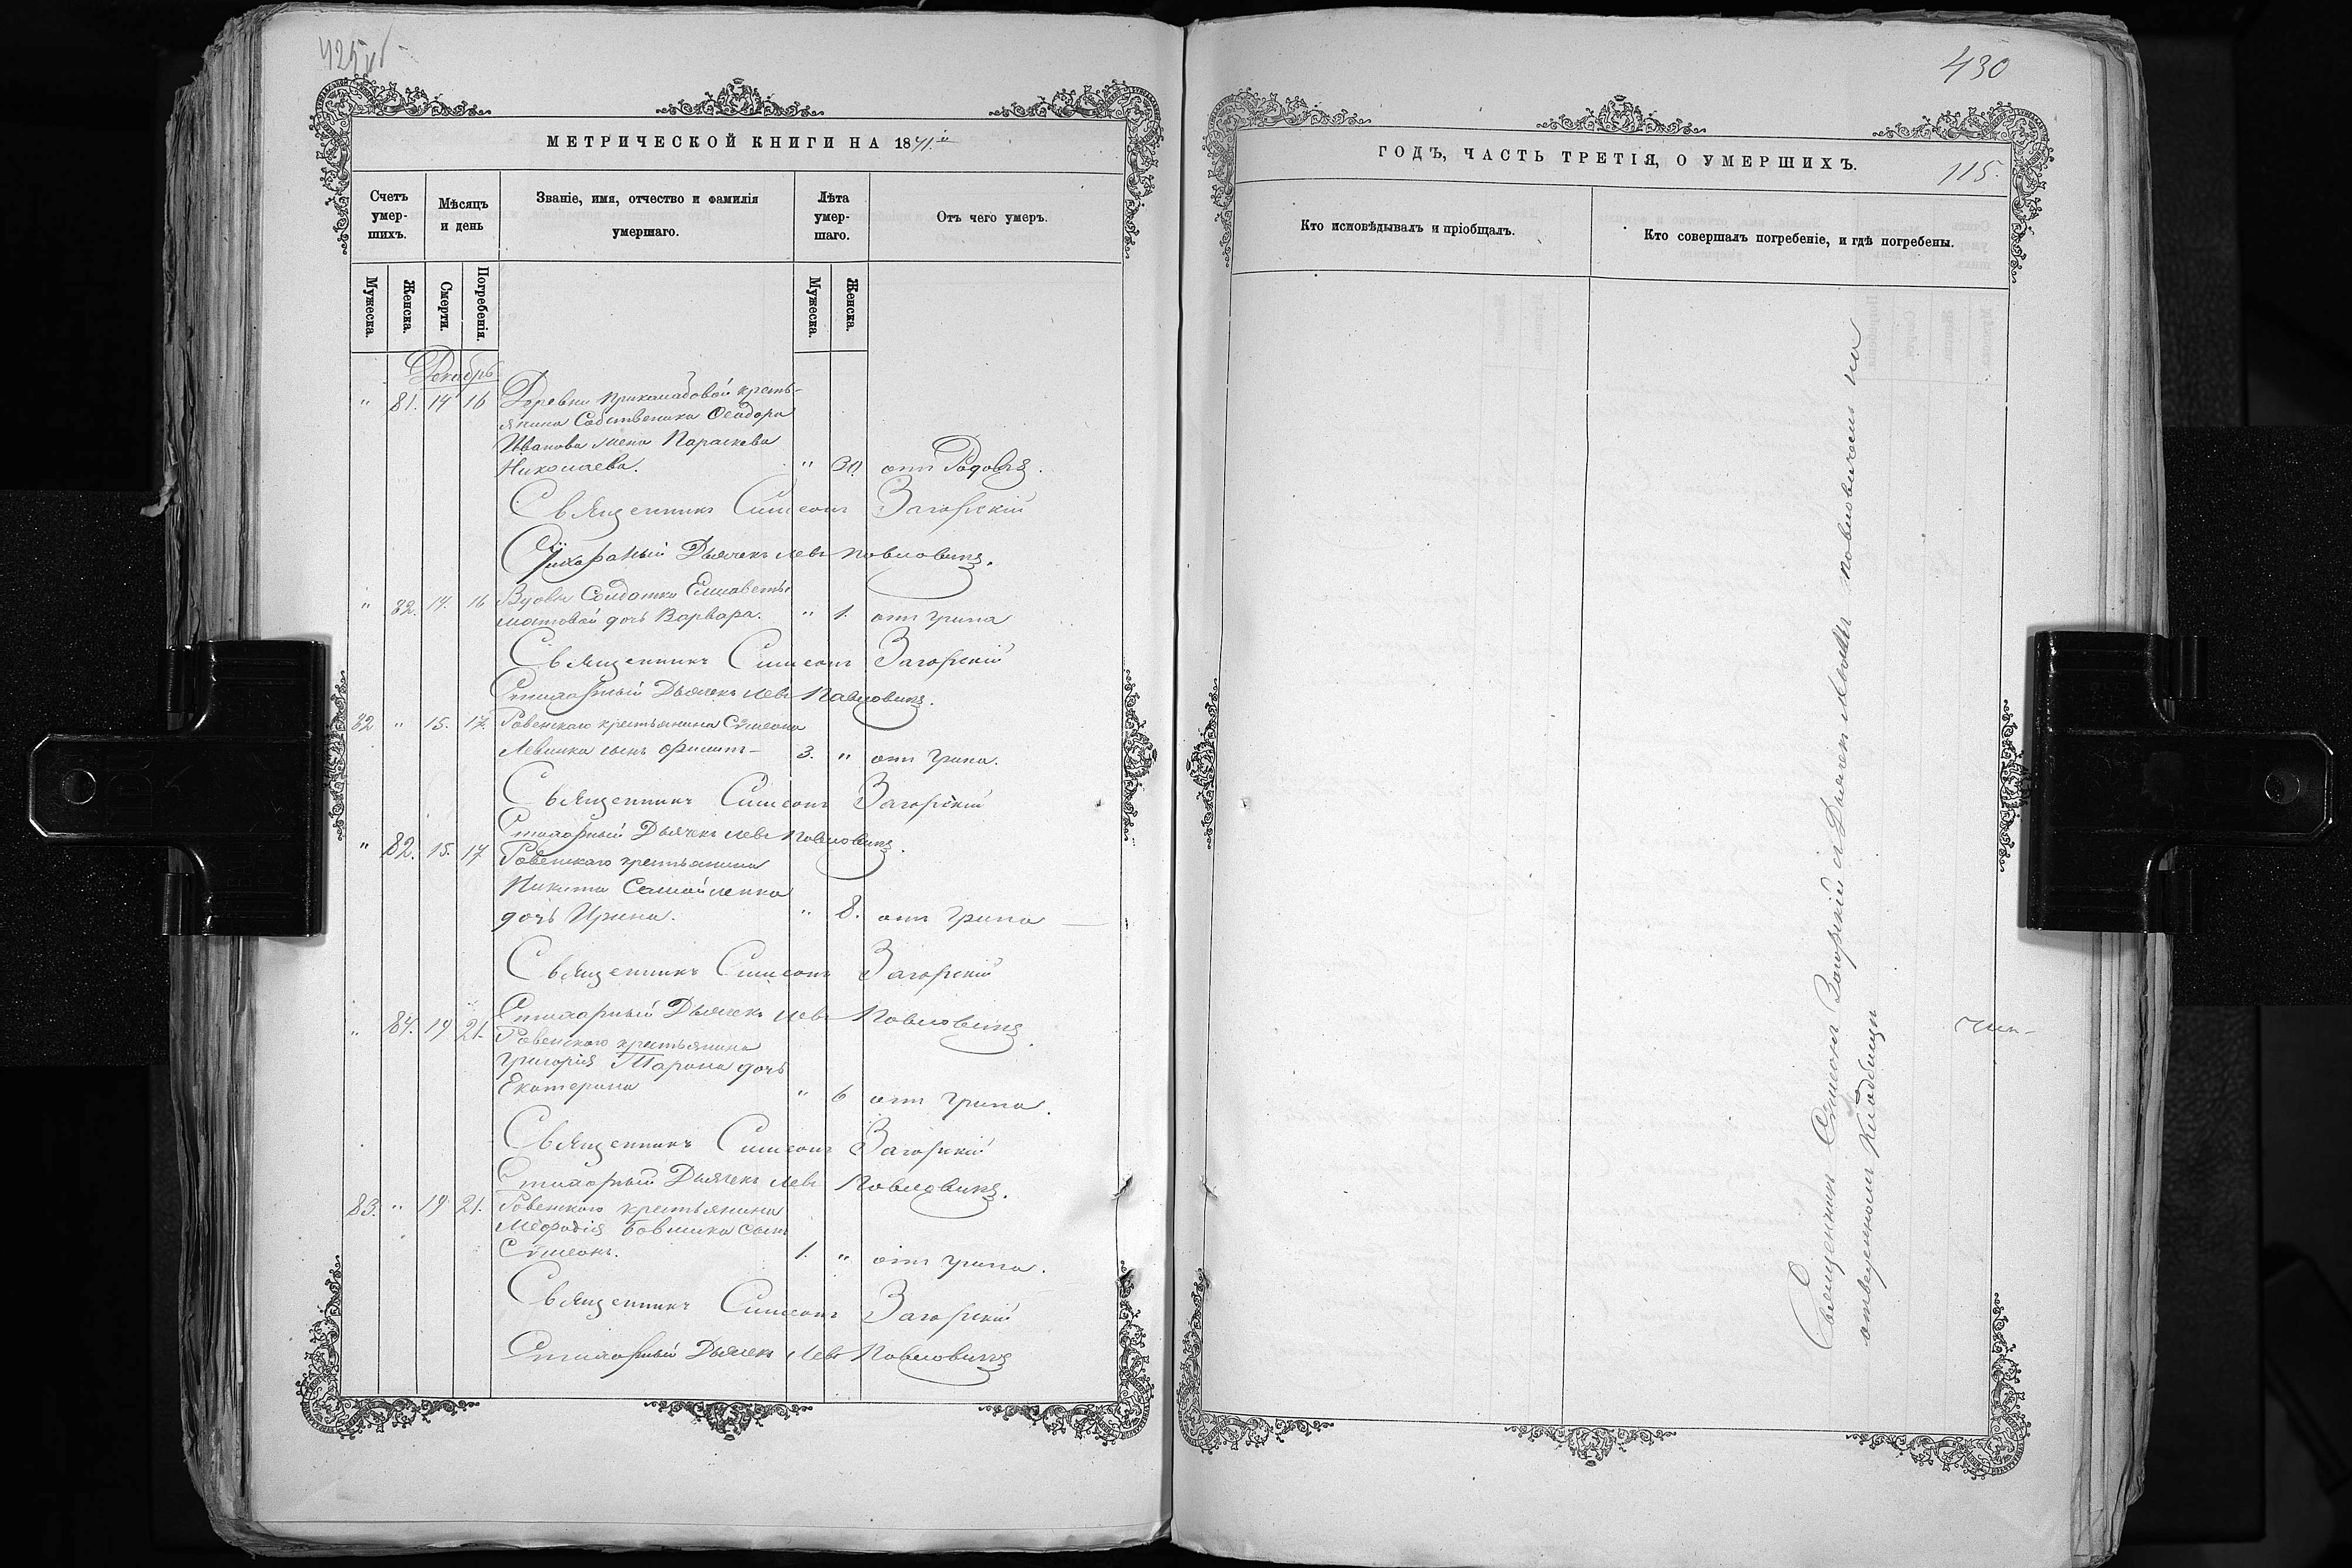 430
МЕТРИЧЕСКОЙ КНИГИ НА 1871й
Счетъ умер-шихъ.
Мѣсяцъ и день
Званіе, имя, отчество и фамилія умершаго.
Лѣта умер-шаго.
Отъ чего умеръ.
Мужеска.
Женска.
Смерти.
Погребенія.
Мужеска.
Женска.
Декабрь
" 81. 14 16 Деревни кресть-
янина Собственика Ѳеодора
Иванова жена Параскева
Николаева. " 30. отъ Родовъ.
Священникъ Симеонъ Загорскій
Стихарный Дьячекъ Левъ Павловичъ.
" 82. 14. 16 Вдовы Солдатки Елисаветы
дочь Варвара. " 1. отъ грипа
Священникъ Симеонъ Загорскій
Стихарный Дьячекъ Левъ Павловичъ.
82 " 15. 17. Ровенскаго крестьянина Сѵмеона
Левчика сынъ Филипъ 3. " отъ грипа.
Священникъ Симеонъ Загорскій
Стихарный Дьячекъ Левъ Павловичъ.
" 82. 15. 17 Ровенскаго крестьянина
Никиты Самойленка
дочь Ирина. " 8. отъ грипа
Священникъ Симеонъ Загорскій
Стихарный Дьячекъ Левъ Павловичъ.
" 84. 19 21. Ровенскаго крестьянина
Григорія Тарана дочь
Екатерина " 6 отъ грипа.
Священникъ Симеонъ Загорскій
Стихарный Дьячекъ Левъ Павловичъ.
83. " 19 21. Ровенскаго крестьянина
Меѳодія сынъ
Сѵмеонъ. 1. " отъ грипа.
Священникъ Симеонъ Загорскій
Стихарный Дьячекъ Левъ Павловичъ
ГОДЪ, ЧАСТЬ ТРЕТІЯ, О УМЕРШИХЪ.
115.
Кто исповѣдывалъ и пріобщалъ.
Кто совершалъ погребеніе, и гдѣ погребены.
Священникъ Сѵмеонъ Загорскій съ Дьячкомъ Львомъ Павловичемъ на
отведенномъ кладбищѣ